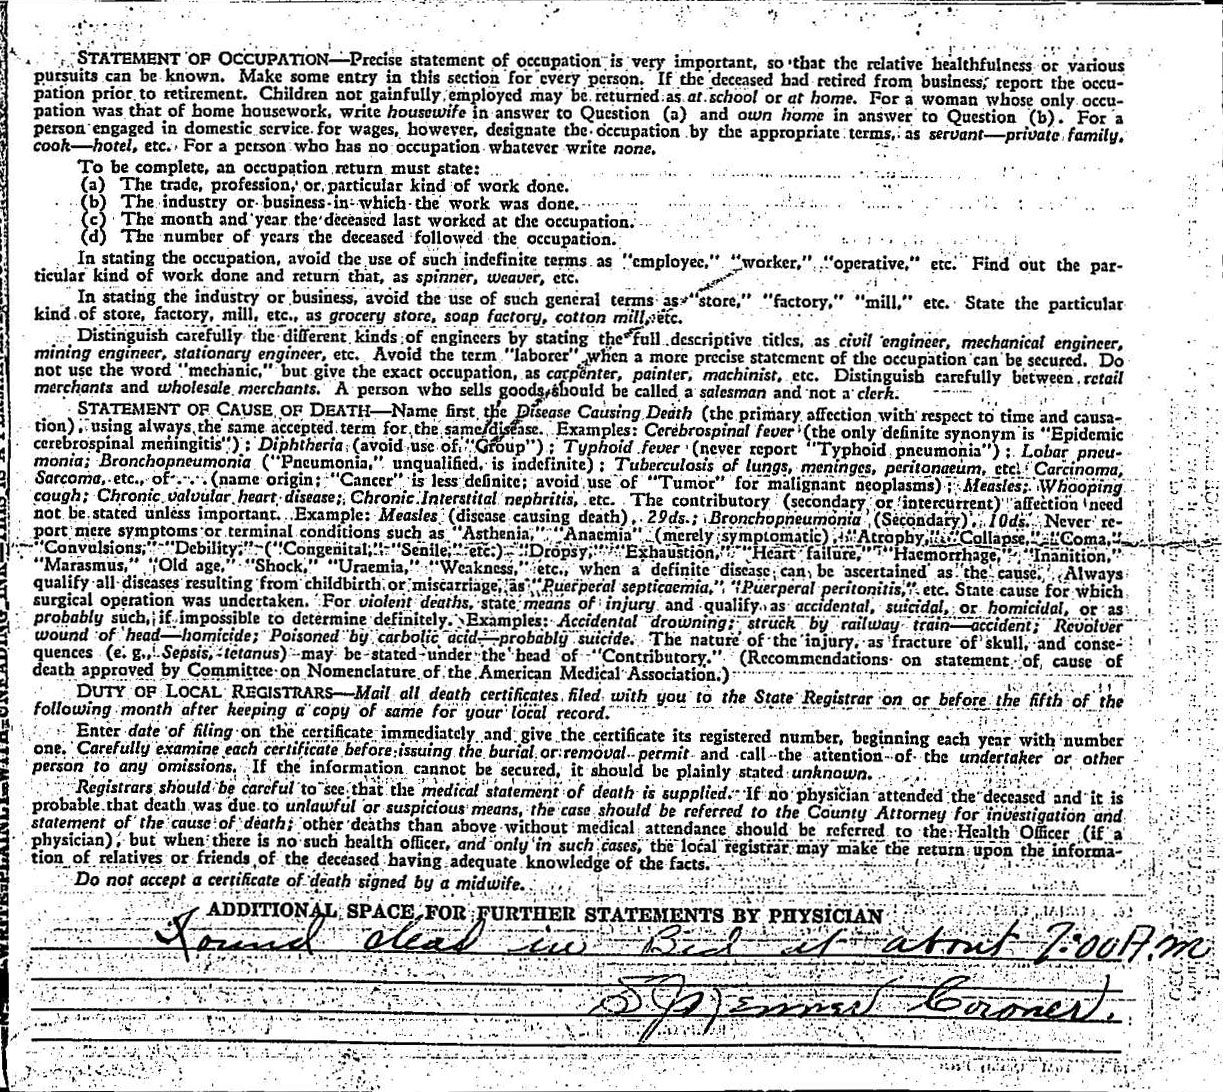 STATEMENT OF OCCUPATION—Precise statement of occupation is very important, so that the relative healthfulness or various
pursuits can be known. Make some entry in this section for every person. If the deceased had retired from business, report the occu-
pation prior to retirement. Children not gainfully employed may be returned as at school or at home. For a woman whose only occu-
pation was that of home housework, write housewife in answer to Question (a) and own home in answer to Question (b). For a
person engaged in domestic service for wages, however, designate the occupation by the appropriate terms, as servant—private family,
cook—hotel, etc. For a person who has no occupation whatever write none.
To be complete, an occupation return must state:
(a) The trade, profession, or particular kind of work done.
(b) The industry or business in which the work was done.
(c) The month and year the deceased last worked at the occupation.
(d) The number of years the deceased followed the occupation.
In stating the occupation, avoid the use of such indefinite terms as "employee," "worker," "operative," etc. Find out the par-
ticular kind of work done and return that, as spinner, weaver, etc.
In stating the industry or business, avoid the use of such general terms as "store," "factory," "mill," etc. State the particular
kind of store, factory, mill, etc., as grocery store, soap factory, cotton mill, etc.
Distinguish carefully the different kinds of engineers by stating the full descriptive titles, as civil engineer, mechanical engineer,
mining engineer, stationary engineer, etc. Avoid the term "laborer" when a more precise statement of the occupation can be secured. Do
not use the word "mechanic," but give the exact occupation, as carpenter, painter, machinist, etc. Distinguish carefully between retail
merchants and wholesale merchants. A person who sells goods should be called a salesman and not a clerk.
STATEMENT OF CAUSE OF DEATH—Name first the Disease Causing Death (the primary affection with respect to time and causa-
tion), using always the same accepted term for the same disease. Examples: Cerebrospinal fever (the only definite synonym is "Epidemic
cerebrospinal meningitis"); Diphtheria (avoid use of "Group"); Typhoid fever (never report "Typhoid pneumonia"); Lobar pneu-
monia; Bronchopneumonia ("Pneumonia," unqualified, is indefinite); Tuberculosis of lungs, meninges, peritonaeum, etc. Carcinoma,
Sarcoma, etc., of . . . (name origin; "Cancer" is less definite; avoid use of "Tumor" for malignant neoplasms); Measles; Whooping
cough; Chronic valvular heart disease; Chronic Interstital nephritis, etc. The contributory (secondary or intercurrent) affection need
not be stated unless important. Example: Measles (disease causing death), 29ds.; Bronchopneumonia (Secondary), 10ds. Never re-
port mere symptoms or terminal conditions such as "Asthenia," "Anaemia" (merely symptomatic), "Atrophy," "Collapse," "Coma,"
"Convulsions," "Debility," ("Congenital," "Senile," etc.) "Dropsy," "Exhaustion," "Heart failure," "Haemorrhage," "Inanition,"
"Marasmus," "Old age," "Shock," "Uraemia," "Weakness," etc., when a definite disease can be ascertained as the cause. Always
qualify all diseases resulting from childbirth or miscarriage, as "Puerperal septicaemia," "Puerperal peritonitis," etc. State cause for which
surgical operation was undertaken. For violent deaths, state means of injury and qualify as accidental, suicidal, or homicidal, or as
probably such, if impossible to determine definitely. Examples: Accidental drowning; struck by railway train—accident; Revolver
wound of head—homicide; Poisoned by carbolic acid—probably suicide. The nature of the injury, as fracture of skull, and conse-
quences (e. g., Sepsis, tetanus) may be stated under the head of "Contributory." (Recommendations on statement of cause of
death approved by Committee on Nomenclature of the American Medical Association.)
DUTY OF LOCAL REGISTRARS—Mail all death certificates filed with you to the State Registrar on or before the fifth of the
following month after keeping a copy of same for your local record.
Enter date of filing on the certificate immediately and give the certificate its registered number, beginning each year with number
one. Carefully examine each certificate before issuing the burial or removal permit and call the attention of the undertaker or other
person to any omissions. If the information cannot be secured, it should be plainly stated unknown.
Registrars should be careful to see that the medical statement of death is supplied. If no physician attended the deceased and it is
probable that death was due to unlawful or suspicious means, the case should be referred to the County Attorney for investigation and
statement of the cause of death; other deaths than above without medical attendance should be referred to the Health Officer (if a
physician), but when there is no such health officer, and only in such cases, the local registrar may make the return upon the informa-
tion of relatives or friends of the deceased having adequate knowledge of the facts.
Do not accept a certificate of death signed by a midwife.
ADDITIONAL SPACE FOR FURTHER STATEMENTS BY PHYSICIAN
Found dead in Bed at about 7:00 A.M
Coroner.